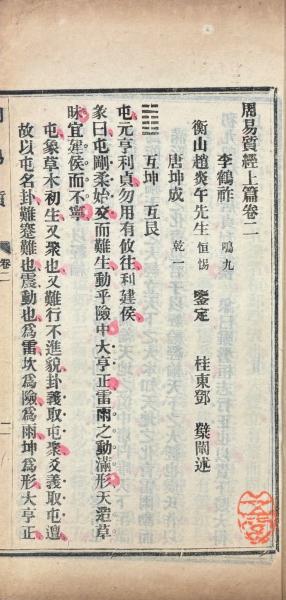 周易質經上篇卷二
李鶴祚 鳴九
衡山趙炎午先生恒惕 鑒定 桂東鄧 㯋闡述
唐坤成 乾一
䷂ 互坤 互艮
屯元亨利貞勿用有攸往利建侯
彖曰屯剛柔始交而難生動乎險中大亨正雷雨之動滿形天造草
昧宜建侯而不寧
屯象草木初生又聚也又難行不進貌卦義取屯聚爻義取屯邅
故以屯名卦難蹇難也震動也爲雷坎爲險爲雨坤爲形大亨正
卷二
二